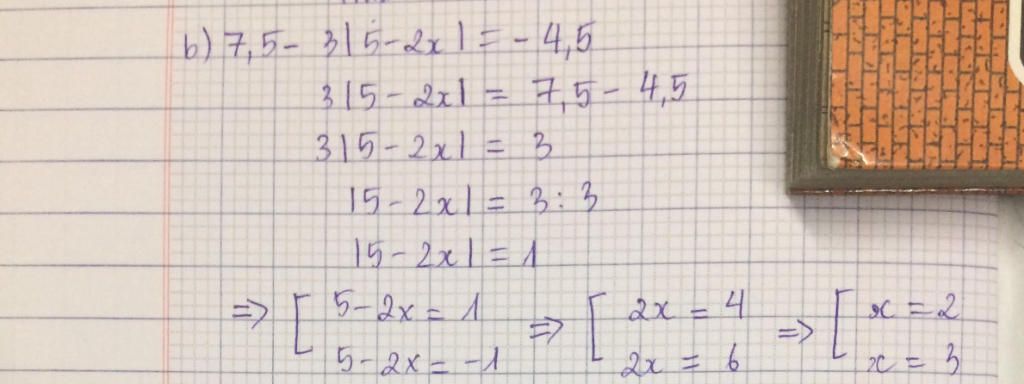 b) 7,5 - 3|5 - 2x| = - 4,5
3|5 - 2x| = 7,5 - 4,5
3|5 - 2x| = 3
|5 - 2x| = 3 : 3
|5 - 2x| = 1
=> [ 5 - 2x = 1 => [ 2x = 4 => [ x = 2
5 - 2x = -1 2x = 6 x = 3